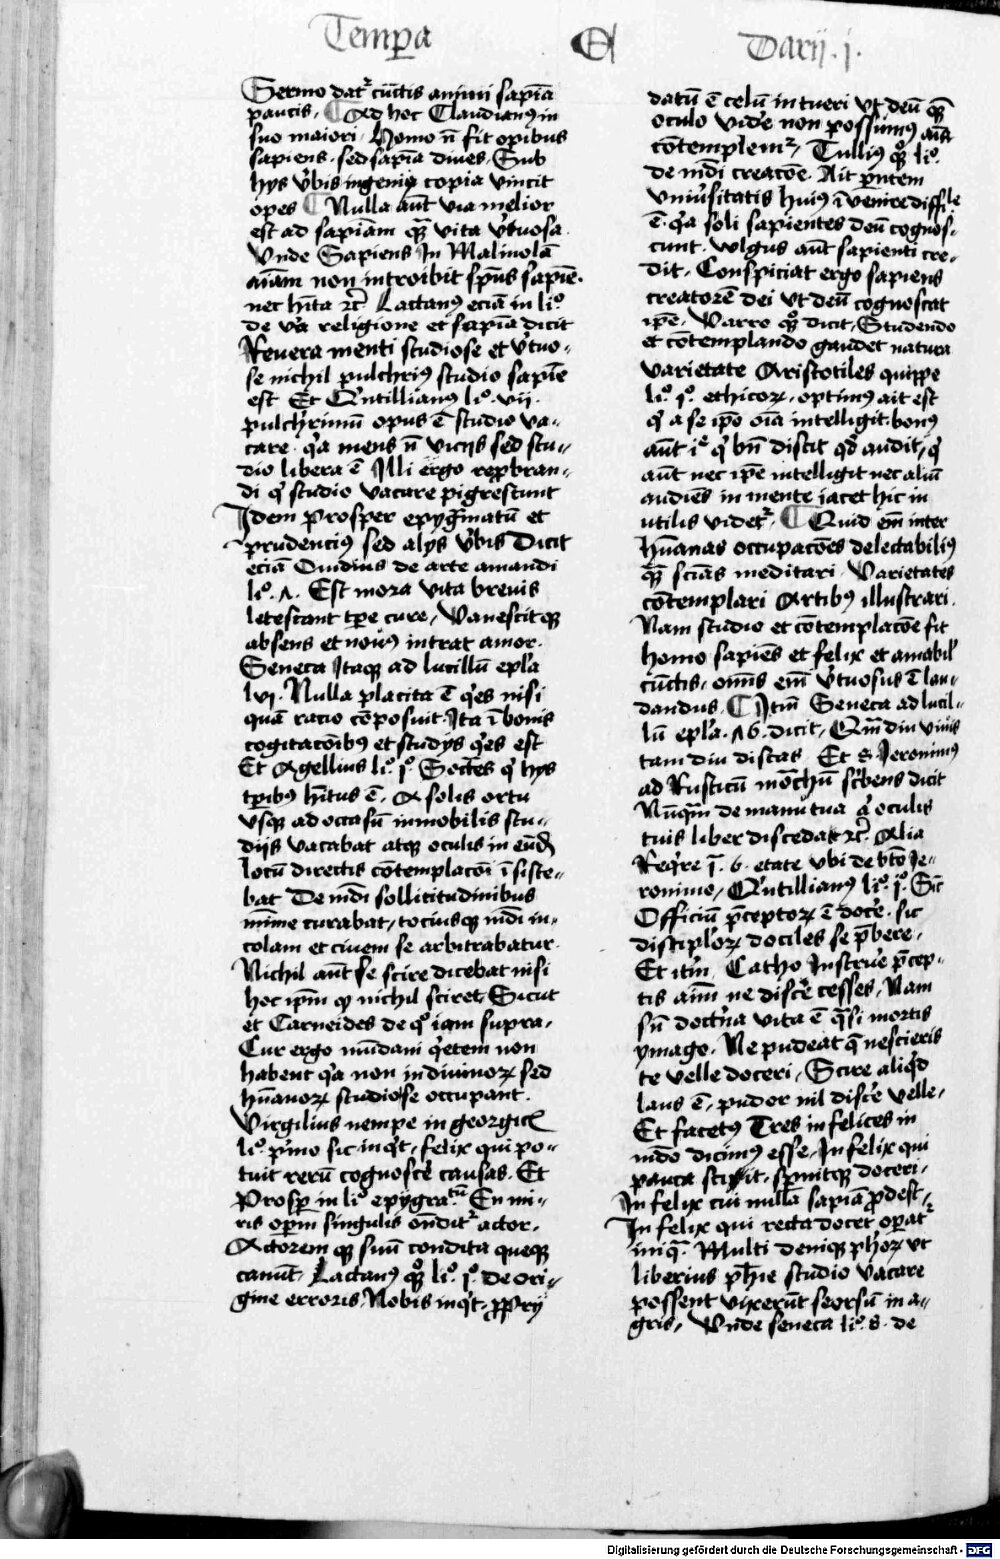 Tempa Et Darii . j .
Sermo datr cūctis animi sapīa
paucis. Ad hoc Claudianus in
suo maiori. Homo n̄ fit opibus
sapiens. sed sapīa diues. Sub
hys vbis ingenij copia vincit
opes Nulla aūt via melior
est ad sapīam quā vita vtuosa.
Vnde Sapiens In Maliuolā
aīam non introibit spūs sapīe.
nec hīta rc̄ Lactanus eciā in lio
de va religione et sapīa dicit
Reuera menti studiose et vtuo-
se nichil pulchrius studio sapīe
est Et Quntillianus lio. vii.
pulchrimū opus ē studio va-
care. qa mens n̄ vicijs sed stu-
dio libera ē Illi ergo repbran-
di qi studio vacare pigrescunt
Idem Prosper epygramatū et
prudencius sed alijs vbis Dicit
eciā Ouidius de arte amandi
lio. Est mora vita breuis
letescant tpe cure, Vanescitqz
absens et nouus intrat amor.
Seneca Itaqz ad lucillū epla
lvi. Nulla placita ē qes nisi
quā racio cōposuit. Ita ī bonis
cogitacōibus et studijs qes est
Et Agellius lio. jo. Socates qi hys
tpibus hītus ē. A solis ortu
vsqz ad occasū inmobilis stu-
dijs vacabat atqz oculis in eūd
locū directis cōtemplacōi īsiste-
bat De mdi sollicitudinibus
mīme curabat, tociusqz mdi in-
colam et ciuem se arbitrabatur.
Nichil aūt se scire dicebat nisi
hoc ipm qi nichil sciret. Sicut
et Carneides de qo iam supra.
Cur ergo mūdani qetem non
habent qa non in diuinorz sed
hūanorz studiose occupant.
Virgilius nempe in georgic
lio. pmo sic inqt, felix qui po-
tuit rerū cognoscē causas. Et
Prosp in lio epygratū En mi-
ris opm singulis ondit r actor.
Actorem qz suū condita queqz
canūt. Lactanus qo lio. jo. de ori-
gine erroris. Nobis inqt. ppry
datū ē celū intueri vt deū qm
oculo vide non possumus aīa
cōtemplemr, Tullius qo lio.
de mdi creacōe. Ait pntem
vniusitatis huius īvenire difficle
ē. qa soli sapientes deū cognos-
cunt. vulgus aūt sapienti cre-
dit. Conspiciat ergo sapiens
creatorē dei vt deū cognoscat
ipē. Varro qo dicit, Studendo
et cōtemplando gaudet natura
varietate Aristotiles quippe
lio. jo. ethicorz. optimus ait est
qi a se ipo oīa intelligit. bonus
aūt qi bn discit qd audit, qi
aūt nec ipē intelligit nec aliū
audiēs in mente iacet hic in
utilis videtr. Quid em inter
hūanas occupacōes delectabilius
quā scīas meditari Varietates
cōtemplari Artibus illustrari.
Nam studio et cōtemplacōe fit
homo sapiēs et felix et amabil
cūctis. omīs em vtuosus ē lau-
dandus. Itm Seneca ad lucil-
lū epla. dicit, Qmdiu viuis
tam diu discas Et S. Jeronimus
ad Rusticū mōchū scbens dicit
Nūqm de manu tua a oculis
tuis liber discedat rc̄. Alia
Reqre ī. 6. etate vbi de bto Je-
ronimo. Quntillianus lio. jo. Sic
Officiū pceptorz ē docē. sic
discip'lorz dociles se pbere.
Et itm Catho Instrue pcep-
tis aīm ne discē cesses. Nam
sn doctna vita ē qsi mortis
ymago. Ne pudeat q nescieris
te velle doceri. Scire aliqd
laus ē, pudor nil discē velle.
Et facetus Tres infelices in
mdo dicimus esse. Infelix qui
pauca scit, spnitqz doceri.
Infelix cui nulla sapīa pdest,
Infelix qui recta docet opatr
iniqa. Multi deniqz phorz vt
liberius phie studio vacare
possent vixerūt seorsū in a-
gris. Vnde seneca lio. 8. de
Digitalisierung gefördert durch die Deutsche Forschungsgemeinschaft - DFG